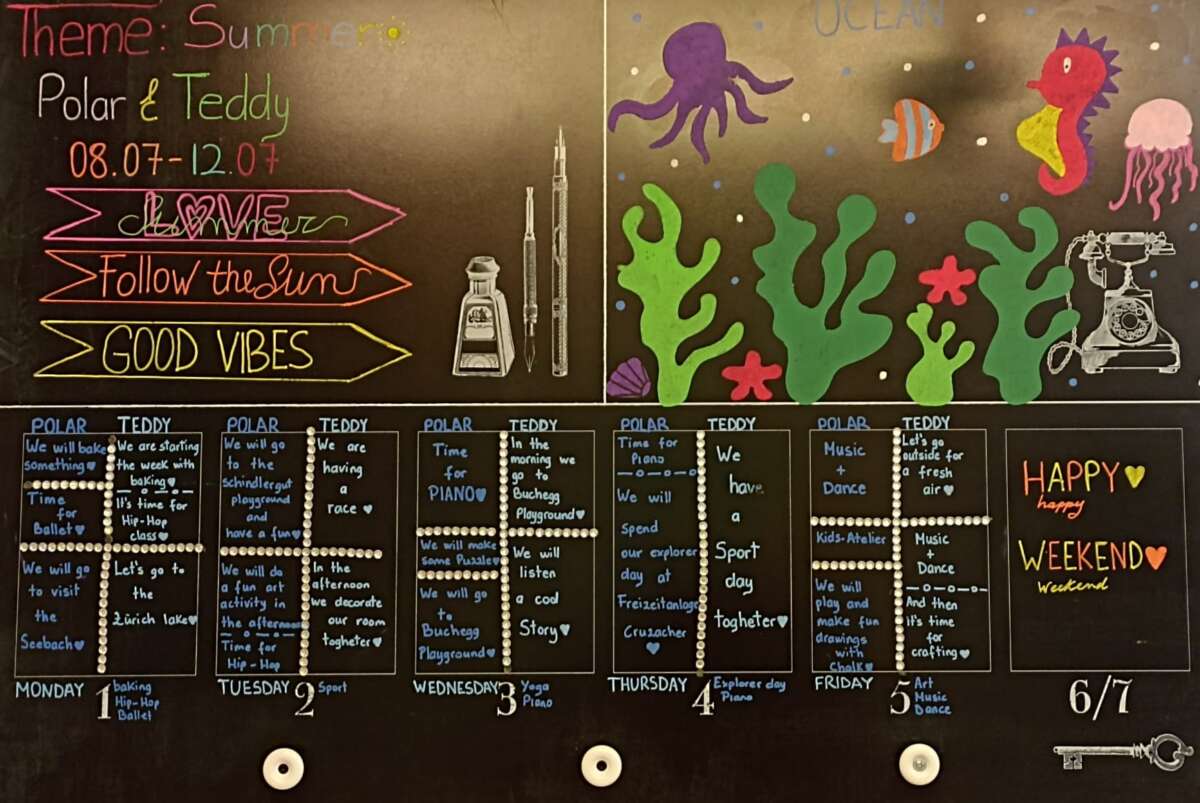 Theme: Summer
Polar & Teddy
08.07-12.07
LOVE
Summer
Follow the Sun
GOOD VIBES
OCEAN
POLAR
We will bake
something
Time
for
Ballet
We will go
to visit
the
Seebach
TEDDY
We are starting
the week with
baking
It's time for
Hip-Hop
class
Let's go to
the
Zürich lake
MONDAY 1
baking
Hip-Hop
Ballet
POLAR
We will go
to the
Schindlergut
playground
and
have a fun
We will do
a fun art
activity in
the afternoon
Time for
Hip-Hop
TEDDY
We are
having
a
race
In the
afternoon
we decorate
our room
togheter
TUESDAY 2
Sport
POLAR
Time
for
PIANO
We will make
some Puzzle
We will go
to
Buchegg
Playground
TEDDY
In the
morning we
go to
Buchegg
Playground
We will
listen
a cool
Story
WEDNESDAY 3
Yoga
Piano
POLAR
Time for
Piano
We will
spend
our explorer
day at
Freizeitanlage
Cruzacher
TEDDY
We
have
a
Sport
day
togheter
THURSDAY 4
Explorer day
Piano
POLAR
Music
+
Dance
Kids-Atelier
We will
play and
make fun
drawings
with
Chalk
TEDDY
Let's go
outside for
a fresh
air
Music
+
Dance
And then
it's time
for
crafting
FRIDAY 5
Art
Music
Dance
HAPPY
happy
WEEKEND
weekend
6/7